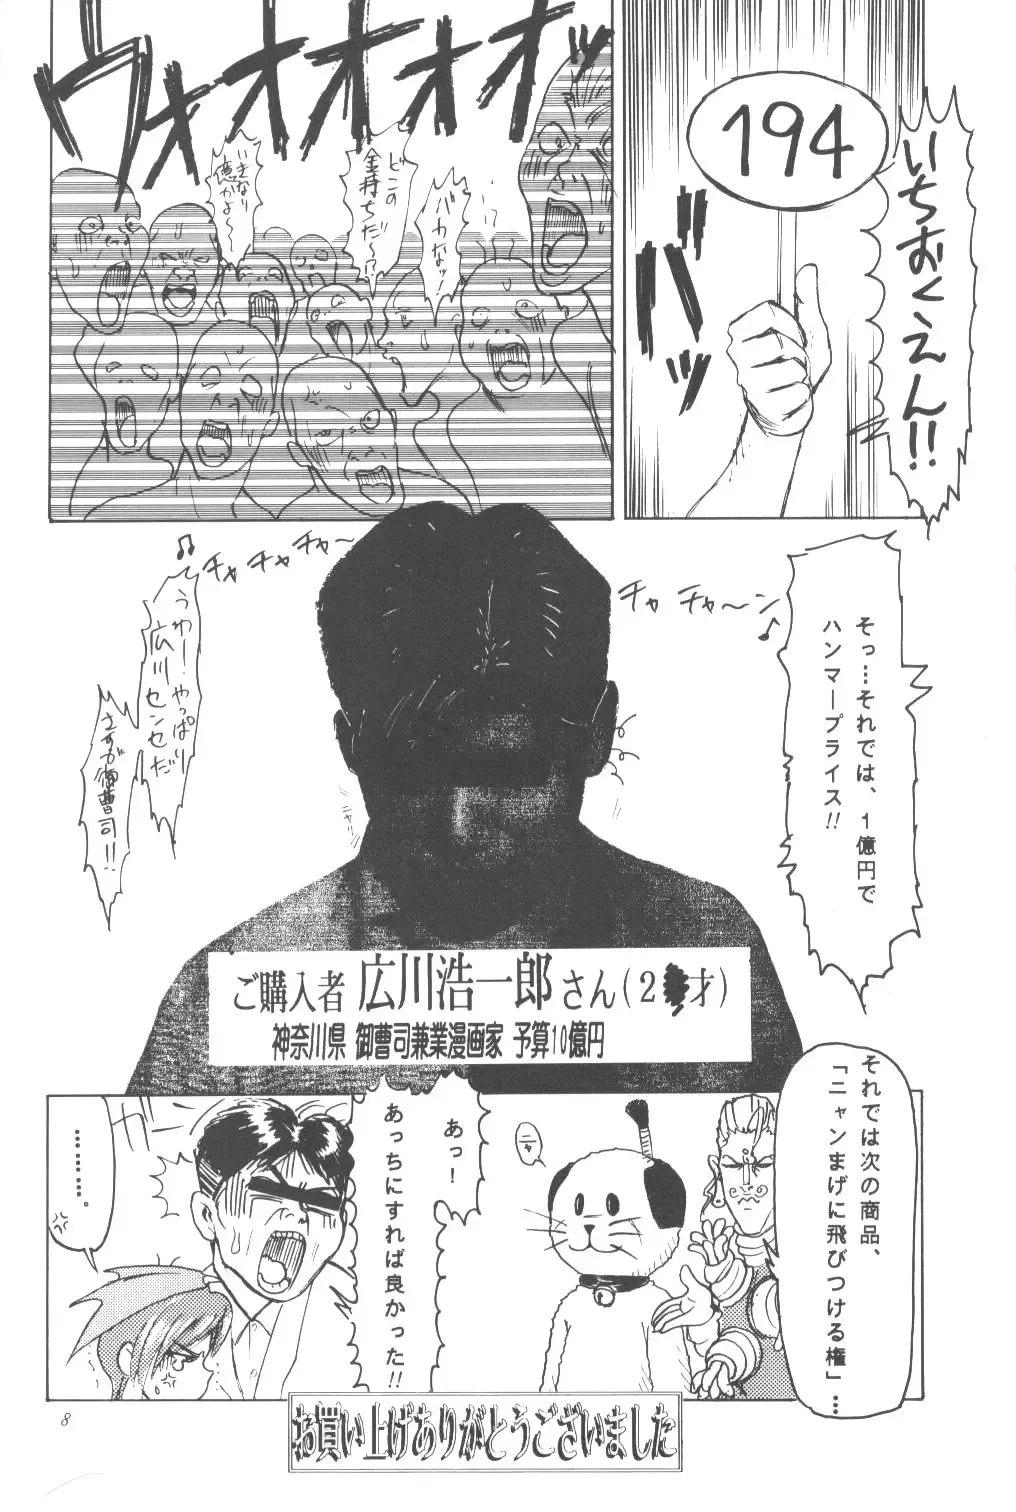 194
いちおくえん!!
バッ
ウォオオオオッ
バカなッ!
どこの
金持ちだ〜!?
いきなり
億かよ〜
そっ…それでは、1億円で
ハンマープライス!!
チャ チャ〜ン♪
チャチャチャ〜♪
うわー!やっぱり
広川センセだ
さすが御曹司!!
ニャリ
ご購入者 広川浩一郎さん(2 才)
神奈川県 御曹司兼業漫画家 予算10億円
それでは次の商品、
「ニャンまげに飛びつける権」…
ニャ
あっ!
あっちにすれば良かった!!
………。
お買い上げありがとうございました
8